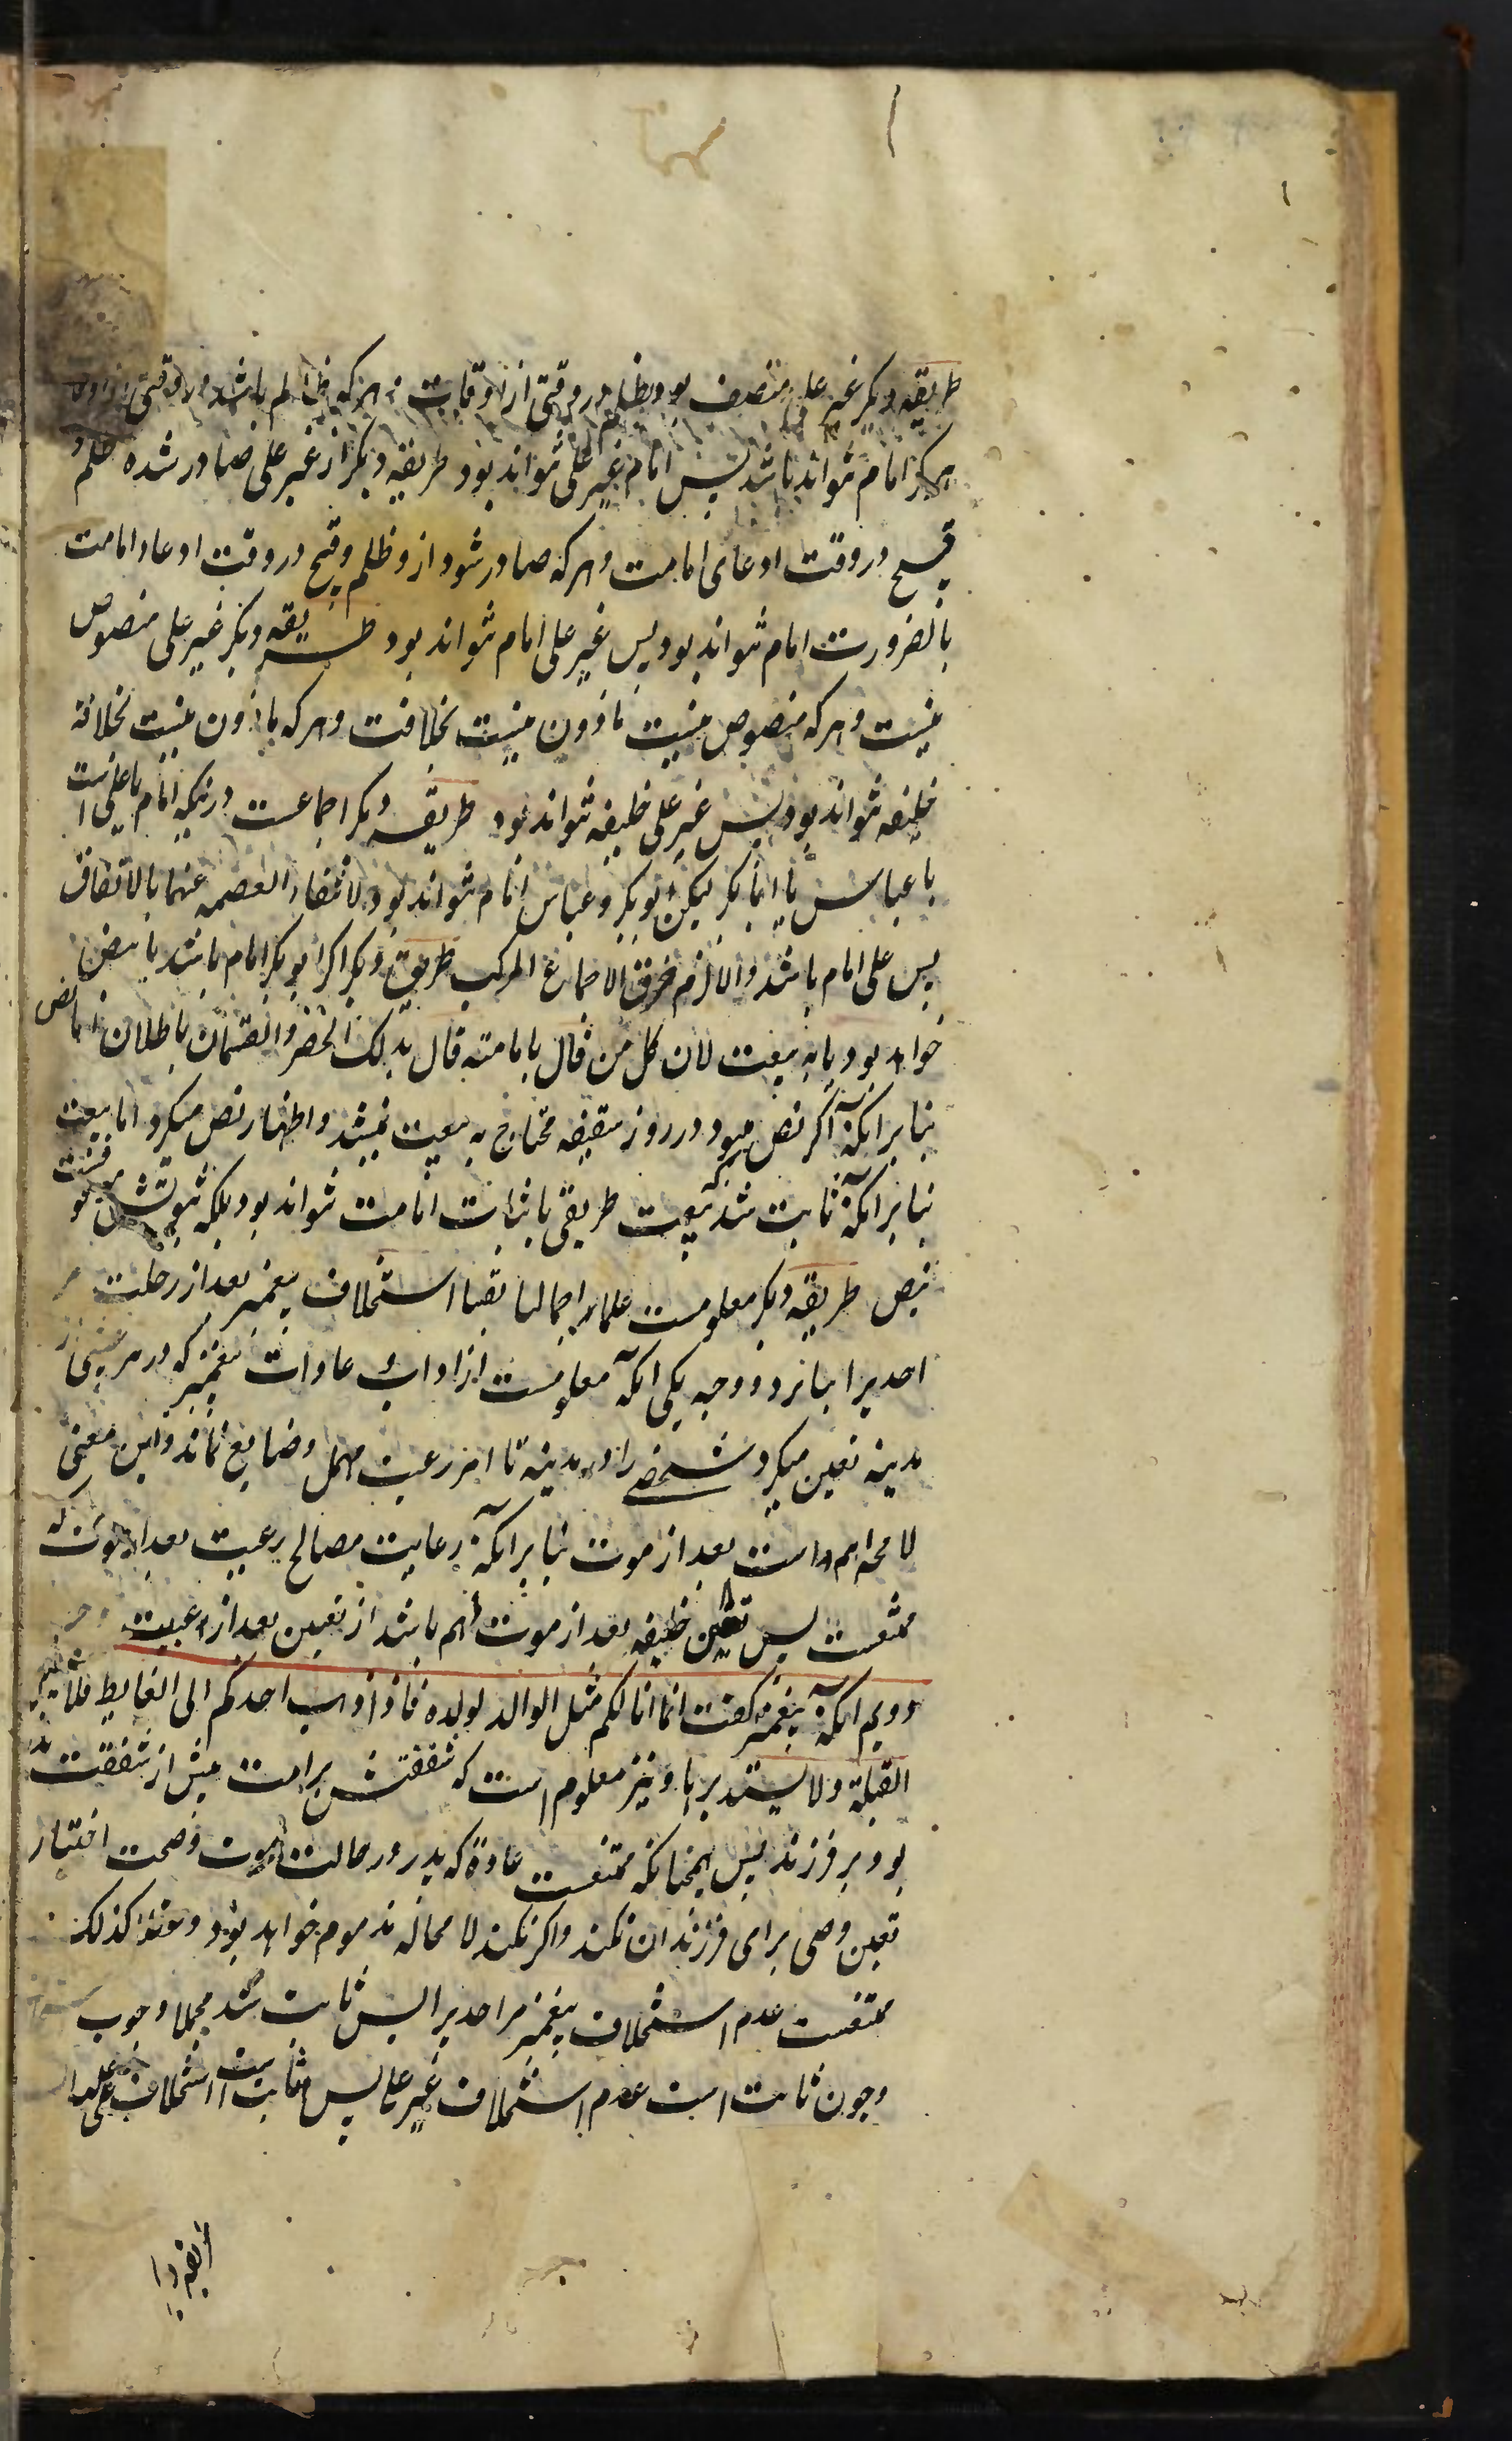 طریقه دیکر غیر علی متصف بود بظلم در وقتی از اوقات و هر که ظالم باشد در وقتی از اوقات
هرکز امام نتواند باشد پس امام غیر علی نتواند بود طریقه دیکر از غیر علی صادر شده ظلم و
قبیح در وقت ادعای امامت و هر که صادر شود از و ظلم و قبح در وقت ادعاء امامت
بالضرورت امام نتواند بود پس غیر علی امام نتواند بود طریقه دیکر غیر علی منصوص
نیست و هر که منصوص نیست ماذون نیست بخلافت و هر که ماذون نیست بخلافة
خلیفه نتواند بود پس غیر علی خلیفه نتواند بود طریقه دیکر اجماعست درینکه امام یا علی است
یا عباس یا ابابکر لیکن ابوبکر و عباس امام نتواند بود لانتفاء العصمه عنهما بالاتفاق
پس علی امام باشد والا لزم خرق الاجماع المرکب طریق دیکر اکر ابوبکر امام باشد یا بنص
خواهد بود یا به بیعت لان کل من قال بامامته قال بذلک الحصر والقسمان باطلان اما نص
بنابر انکه اکر نص میبود در روز سقیفه محتاج به بیعت نمیشد و اظهار نص میکرد اما بیعت
بنابر انکه ثابت شد که بیعت طریقی باثبات امامت نتواند بود بلکه ثبوتش موقوفست
بنص طریقه دیکر معلومست علماء اجمالیا یقینا استخلاف پیغمبر بعد از رحلت مر
احدیرا بنابر دو وجه یکی انکه معلومست از اداب و عادات پیغمبر که در هر غیبتی از
مدینه تعین میکرد شخصی را در مدینه تا امر رعیت مهمل و ضایع نماند و این معنی
لا محه اهم است بعد از موت بنابر انکه رعایت مصالح رعیت بعد از موت له
ممتنعست پس تعین خلیفه بعد از موت اهم باشد از تعین بعد از غیبت
دویم انکه پیغمبر کفت انما انا لکم مثل الوالد لولده فاذا ذهب احدکم الی الغایط فلا یستقبل
القبلة ولا یستدبرها و نیز معلوم است که شفقتش بر امت بیش از شفقت پدر
بود بر فرزند پس همچنانکه ممتنعست عادة که پدر در حالت موت و صحت اختیار
تعین وصی برای فرزندان نکند و اکر نکند لا محاله مذموم خواهد بود کذلک
ممتنعست عدم استخلاف پیغمبر مر احدیرا پس ثابت شد مجملا وجوب
و چون ثابت است عدم استخلاف غیر علی پس ثابت است استخلاف علی